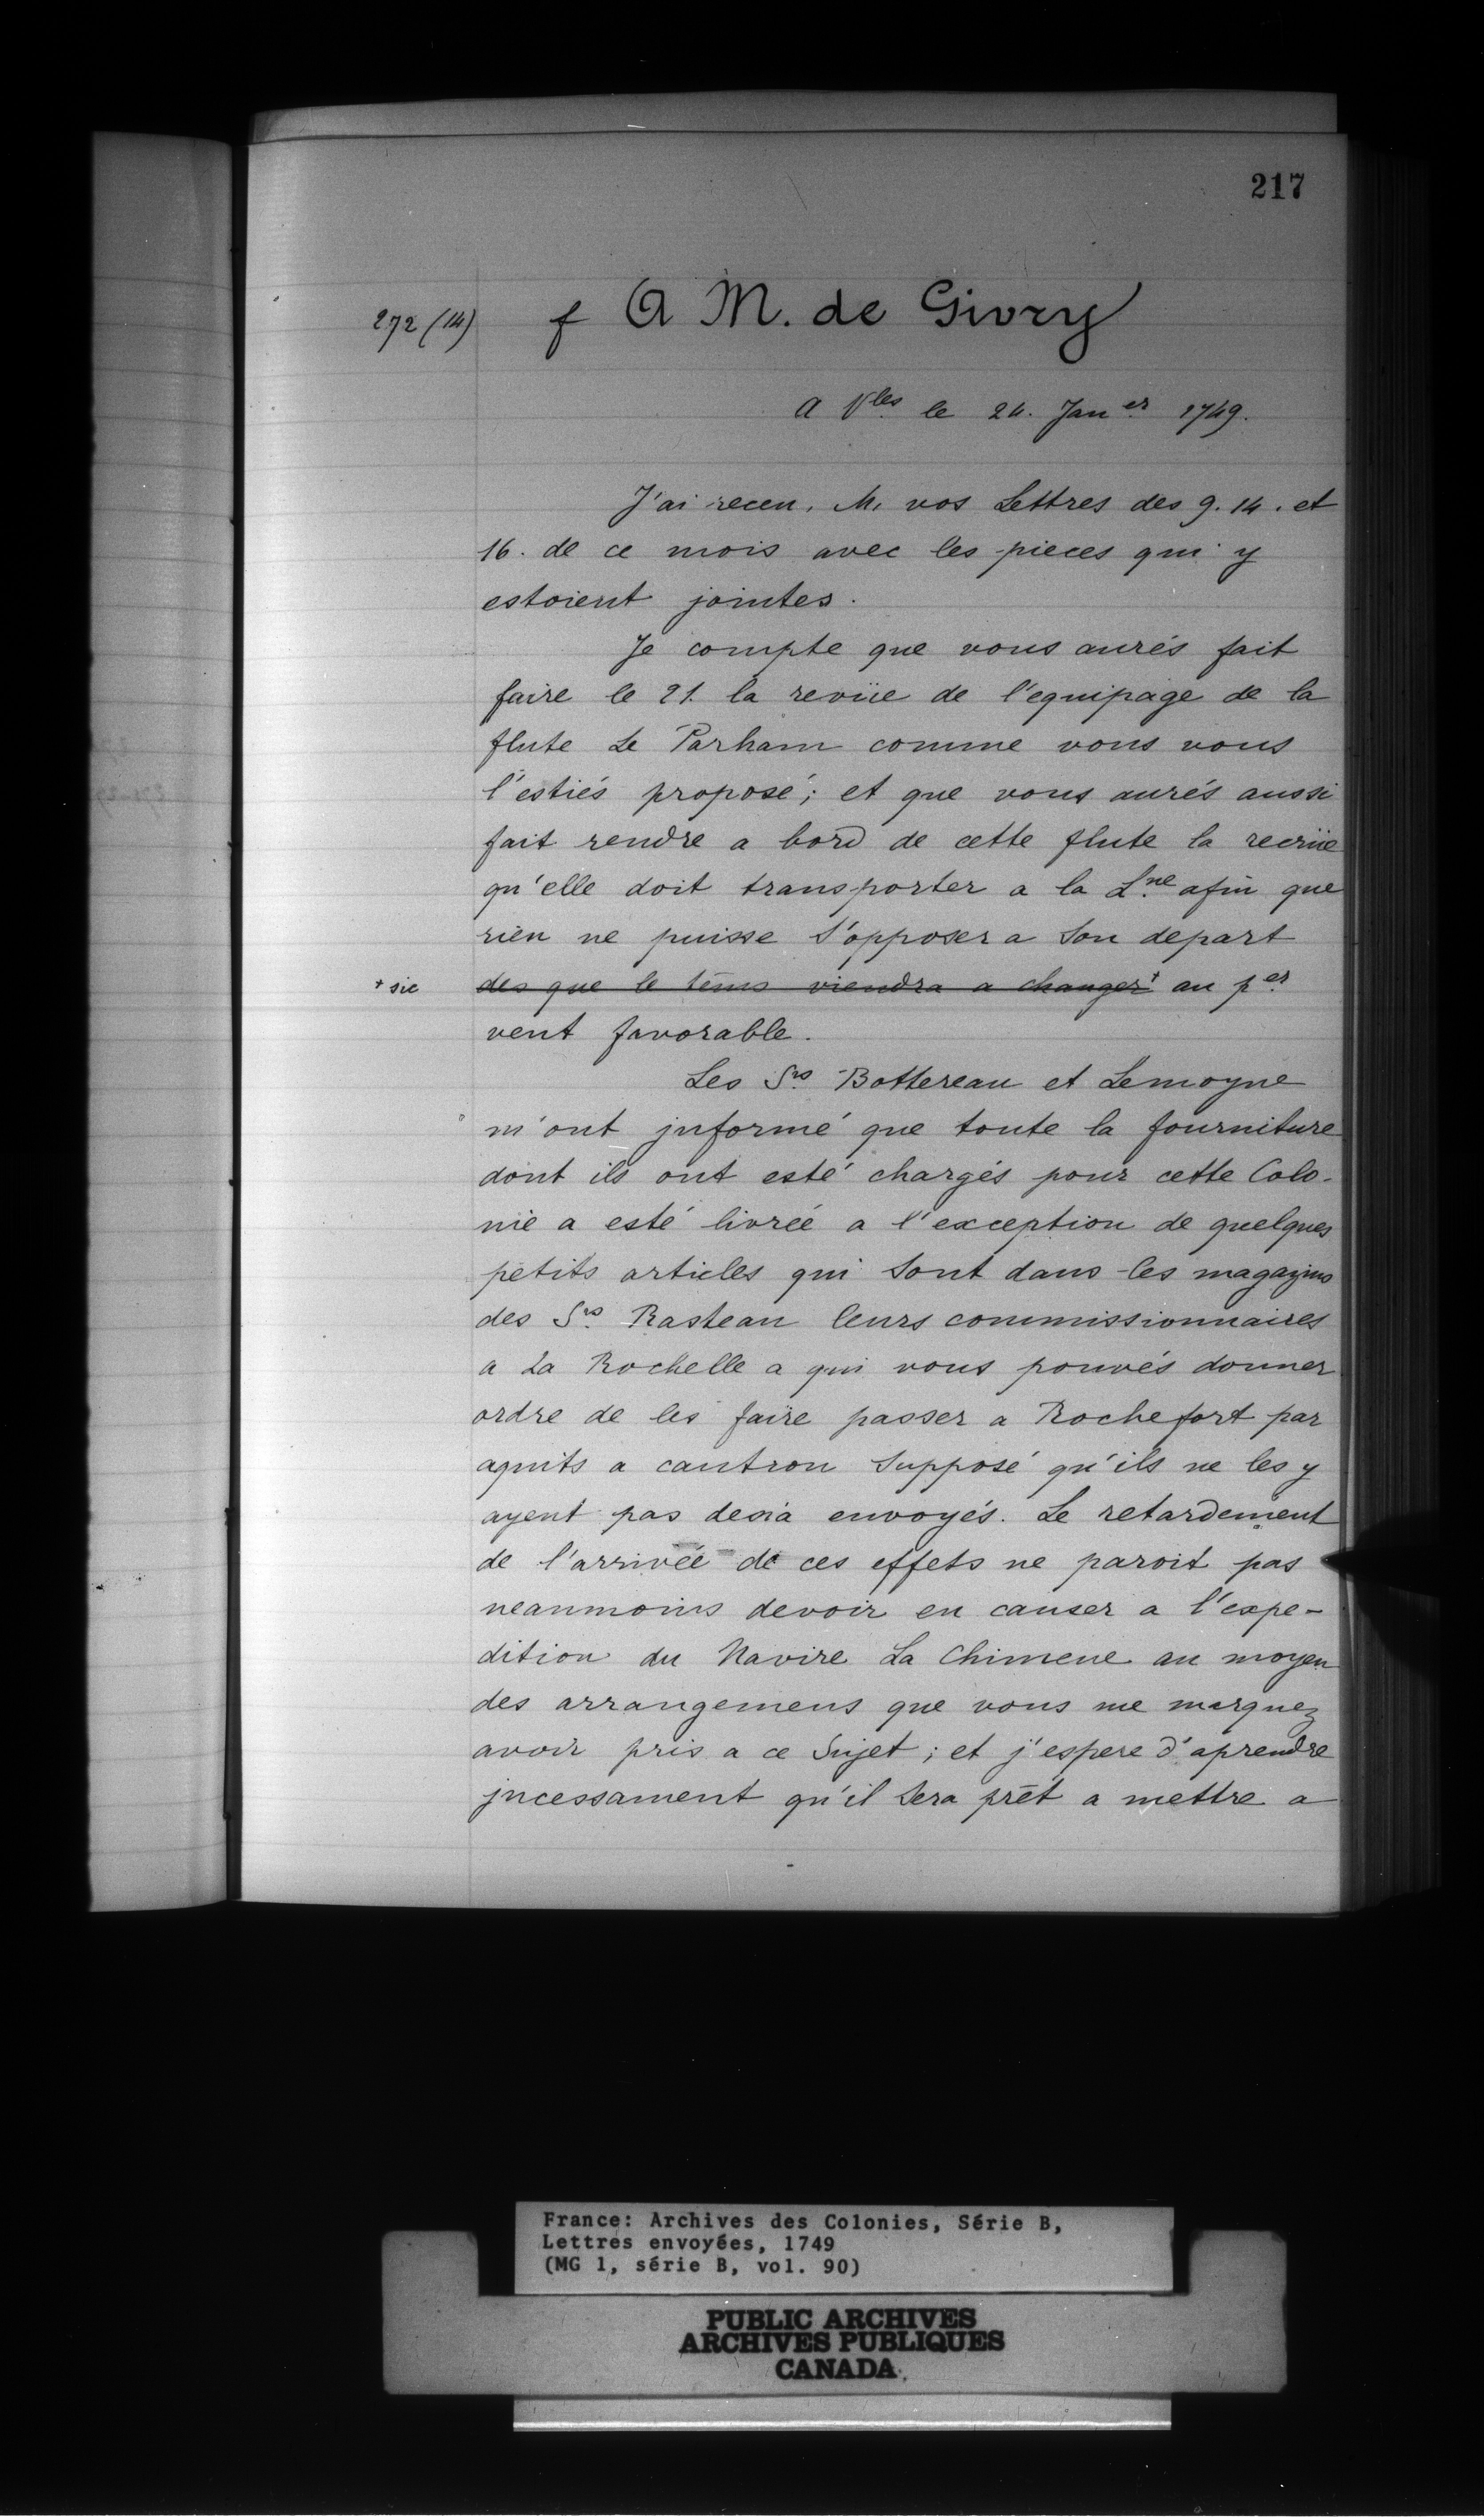 217
272 (14) f A M. de Givry
A Vles le 24. Janer 1749.
J'ai receu, M. vos Lettres des 9. 14. et
16. de ce mois avec les pieces qui y
estoient jointes.
Je compte que vous aurés fait
faire le 21. la revüe de l'equipage de la
flute Le Parham comme vous vous
l'estiés proposé; et que vous aurés aussi
fait rendre a bord de cette flute la recrüe
qu'elle doit transporter a la Lne afin que
rien ne puisse s'opposer a son depart
+ sic des que le tems viendra a changer+ au per
vent favorable.
Les Srs Bottereau et Lemoyne
m'ont jnformé que toute la fourniture
dont ils ont esté chargés pour cette Colo-
nie a esté livrée a l'exception de quelques
petits articles qui sont dans les magazins
des Srs Rasteau leurs commissionnaires
a La Rochelle a qui vous pouvés donner
ordre de les faire passer a Rochefort par
aquits a cautron supposé qu'ils ne les y
ayent pas desia envoyés. Le retardement
de l'arrivée de ces effets ne paroit pas
neanmoins devoir en causer a l'expe-
dition du Navire La Chimene au moyen
des arrangemens que vous me marquez
avoir pris a ce sujet; et j'espere d'aprendre
jncessament qu'il sera prêt a mettre a
France: Archives des Colonies, Série B,
Lettres envoyées, 1749
(MG 1, série B, vol. 90)
PUBLIC ARCHIVES
ARCHIVES PUBLIQUES
CANADA